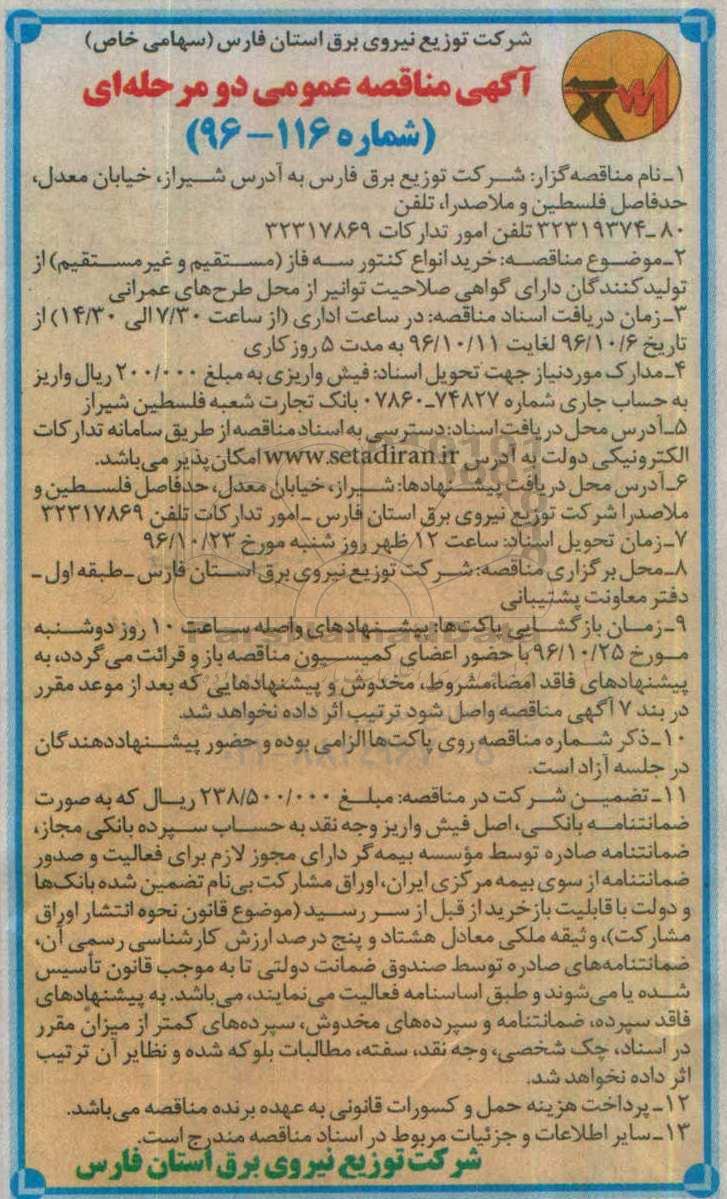 شرکت توزیع نیروی برق استان فارس (سهامی خاص)
آگهی مناقصه عمومی دو مرحله‌ای
(شماره ۱۱۶-۹۶)
۱ـ نام مناقصه‌گزار: شـــرکت توزیع برق فارس به آدرس شـــیراز، خیابان معدل،
حدفاصل فلسطین و ملاصدرا، تلفن
۸۰ـ۳۲۳۱۹۳۷۴ تلفن امور تدارکات ۳۲۳۱۷۸۶۹
۲ـ موضــوع مناقصــه: خرید انواع کنتور ســه فاز (مســـتقیم و غیرمســـتقیم) از
تولیدکنندگان دارای گواهی صلاحیت توانیر از محل طرح‌های عمرانی
۳ـ زمان دریافت اسناد مناقصه: در ساعت اداری (از ساعت ۷/۳۰ الی ۱۴/۳۰) از
تاریخ ۹۶/۱۰/۶ لغایت ۹۶/۱۰/۱۱ به مدت ۵ روز کاری
۴ـ مدارک موردنیاز جهت تحویل اسناد: فیش واریزی به مبلغ ۲۰۰/۰۰۰ ریال واریز
به حساب جاری شماره ۷۴۸۲۷ـ۰۷۸۶۰ بانک تجارت شعبه فلسطین شیراز
۵ـ آدرس محل دریافت اسناد: دسترسی به اسناد مناقصه از طریق سامانه تدارکات
الکترونیکی دولت به آدرس www.setadiran.ir امکان پذیر می‌باشد.
۶ـ آدرس محل دریافت پیشــنهادها: شــیراز، خیابان معدل، حدفاصل فلســطین و
ملاصدرا شرکت توزیع نیروی برق استان فارس ـ امور تدارکات تلفن ۳۲۳۱۷۸۶۹
۷ـ زمان تحویل اسناد: ساعت ۱۲ ظهر روز شنبه مورخ ۹۶/۱۰/۲۳
۸ـ محل برگزاری مناقصه: شــرکت توزیع نیروی برق اســتان فارس ـ طبقه اول ـ
دفتر معاونت پشتیبانی
۹ـ زمــان بازگشــایی پاکت‌ها: پیشــنهادهای واصله ســاعت ۱۰ روز دوشــنبه
مــورخ ۹۶/۱۰/۲۵ با حضور اعضای کمیســیون مناقصه باز و قرائت می‌گردد، به
پیشنهادهای فاقد امضا، مشروط، مخدوش و پیشنهادهایی که بعد از موعد مقرر
در بند ۷ آگهی مناقصه واصل شود ترتیب اثر داده نخواهد شد.
۱۰ـ ذکر شــماره مناقصه روی پاکت‌ها الزامی بوده و حضور پیشــنهاددهندگان
در جلسه آزاد است.
۱۱ـ تضمیــن شــرکت در مناقصه: مبلــغ ۲۳۸/۵۰۰/۰۰۰ ریــال که به صورت
ضمانتنامــه بانکــی، اصل فیش واریز وجه نقد به حســاب ســپرده بانکی مجاز،
ضمانتنامه صادره توسط مؤسسه بیمه‌گر دارای مجوز لازم برای فعالیت و صدور
ضمانتنامه از سوی بیمه مرکزی ایران، اوراق مشارکت بی‌نام تضمین شده بانک‌ها
و دولت با قابلیت بازخرید از قبل از ســر رســید (موضوع قانون نحوه انتشار اوراق
مشارکت)، وثیقه ملکی معادل هشتاد و پنج درصد ارزش کارشناسی رسمی آن،
ضمانتنامه‌های صادره توسط صندوق ضمانت دولتی تا به موجب قانون تأسیس
شــده یا می‌شوند و طبق اساسنامه فعالیت می‌نمایند، می‌باشد. به پیشنهادهای
فاقد سپرده، ضمانتنامه و سپرده‌های مخدوش، سپرده‌های کمتر از میزان مقرر
در اسناد، چک شخصی، وجه نقد، سفته، مطالبات بلوکه شده و نظایر آن ترتیب
اثر داده نخواهد شد.
۱۲ـ پرداخت هزینه حمل و کسورات قانونی به عهده برنده مناقصه می‌باشد.
۱۳ـ سایر اطلاعات و جزئیات مربوط در اسناد مناقصه مندرج است.
شرکت توزیع نیروی برق استان فارس